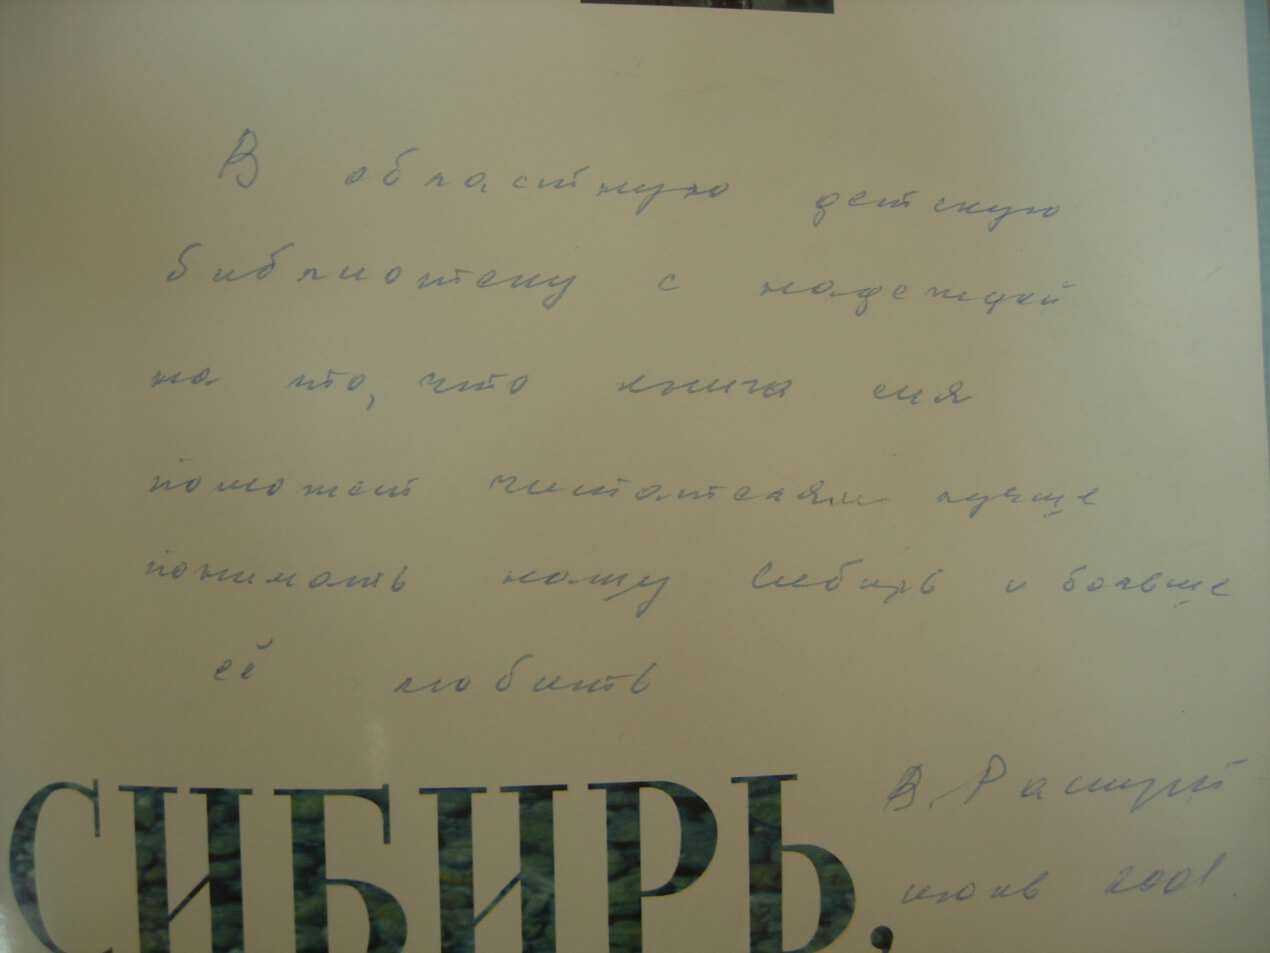 В областную детскую
библиотеку с надеждой
на то, что книга сия
поможет читателям лучше
понимать нашу Сибирь и больше
её любить
В. Распутин
июль 2001
СИБИРЬ,